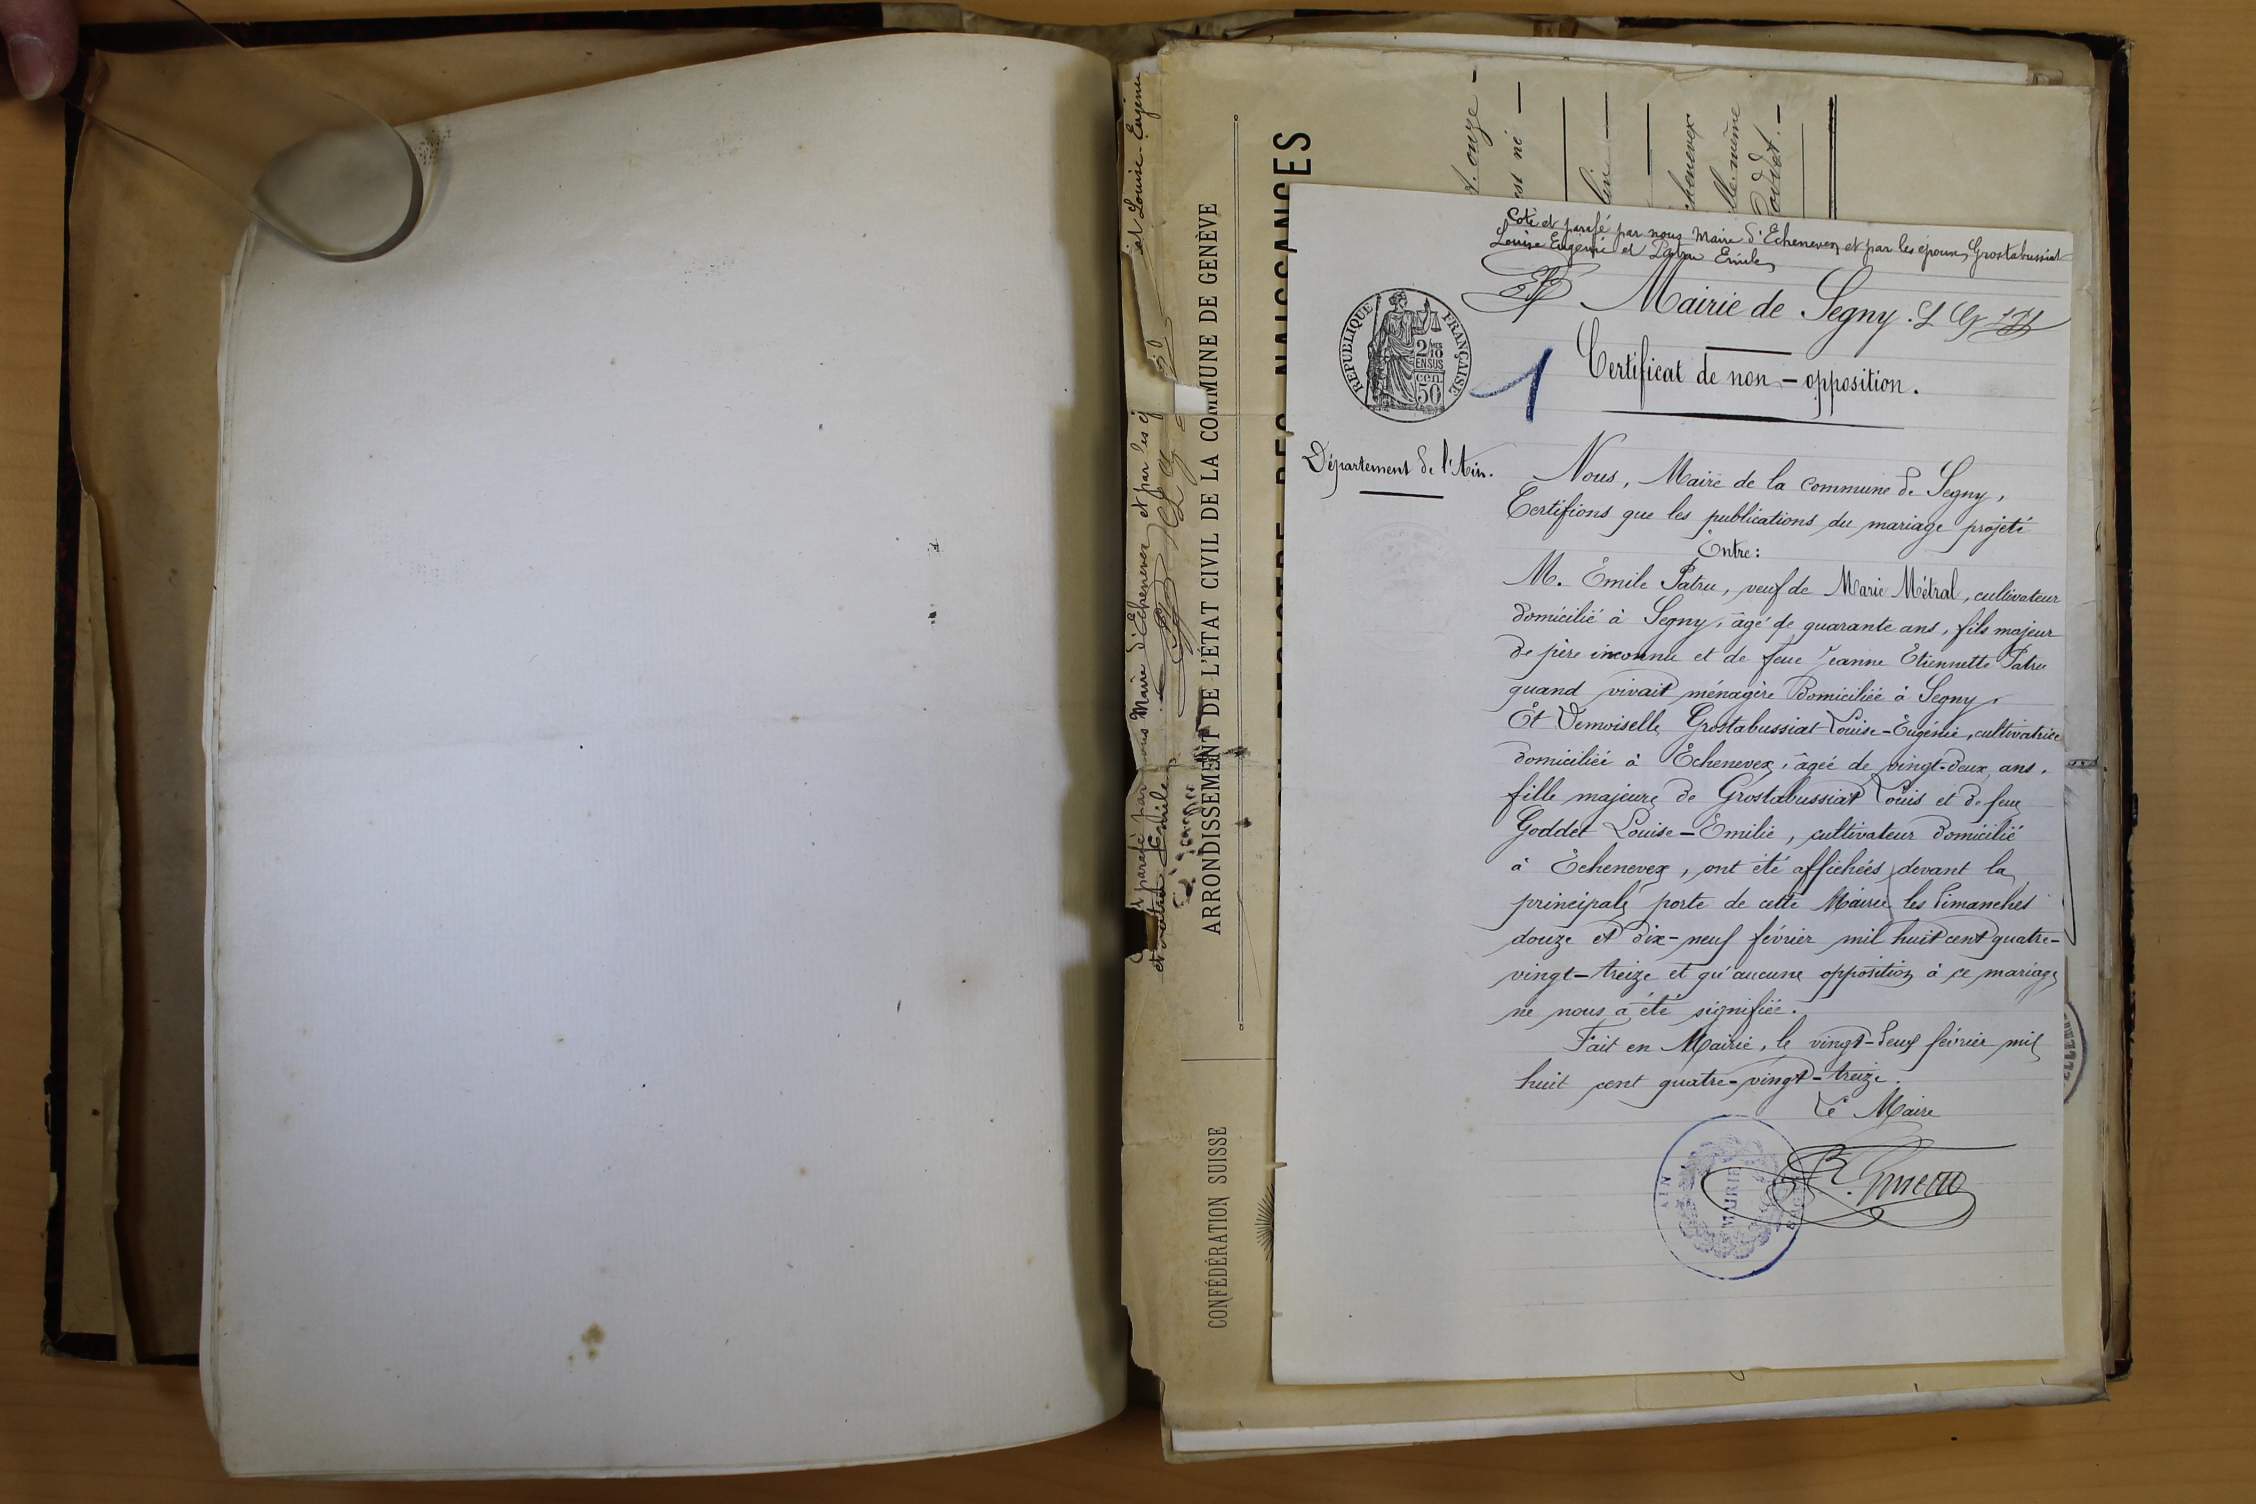 Coté et parafé par nous Maire d'Echenevex et par les époux Grostabussiat
Louise Eugénie et Patru Emile
Mairie de Segny. L G
REPUBLIQUE FRANÇAISE
2/10 MES
EN SUS
cen.
50
1
Certificat de non-opposition.
Département de l'Ain.
Nous, Maire de la commune de Segny,
Certifions que les publications du mariage projeté
Entre:
M. Emile Patru, veuf de Marie Métral, cultivateur
domicilié à Segny, âgé de quarante ans, fils majeur
de père inconnu et de feue Jeanne Etiennette Patru
quand vivait ménagère Domiciliée à Segny.
Et Demoiselle Grostabussiat Louise-Eugénie, cultivatrice
domiciliée à Echenevex, âgée de vingt-deux ans,
fille majeure de Grostabussiat Louis et de feue
Goddet Louise-Emilie, cultivateur domicilié
à Echenevex, ont été affichées devant la
principale porte de cette Mairie les Dimanches
douze et dix-neuf février mil huit cent quatre-
vingt-treize et qu'aucune opposition à ce mariage
ne nous a été signifiée.
Fait en Mairie, le vingt-deux février mil
huit cent quatre-vingt-treize.
Le Maire
AIN
MAIRIE
CONFÉDÉRATION SUISSE
ARRONDISSEMENT DE L'ÉTAT CIVIL DE LA COMMUNE DE GENÈVE
REGISTRE DES NAISSANCES
parafé par nous Maire d'Echenevex et par les
et Louise Eugénie
et Patru Emile
onze
est né
chenevex
elle même